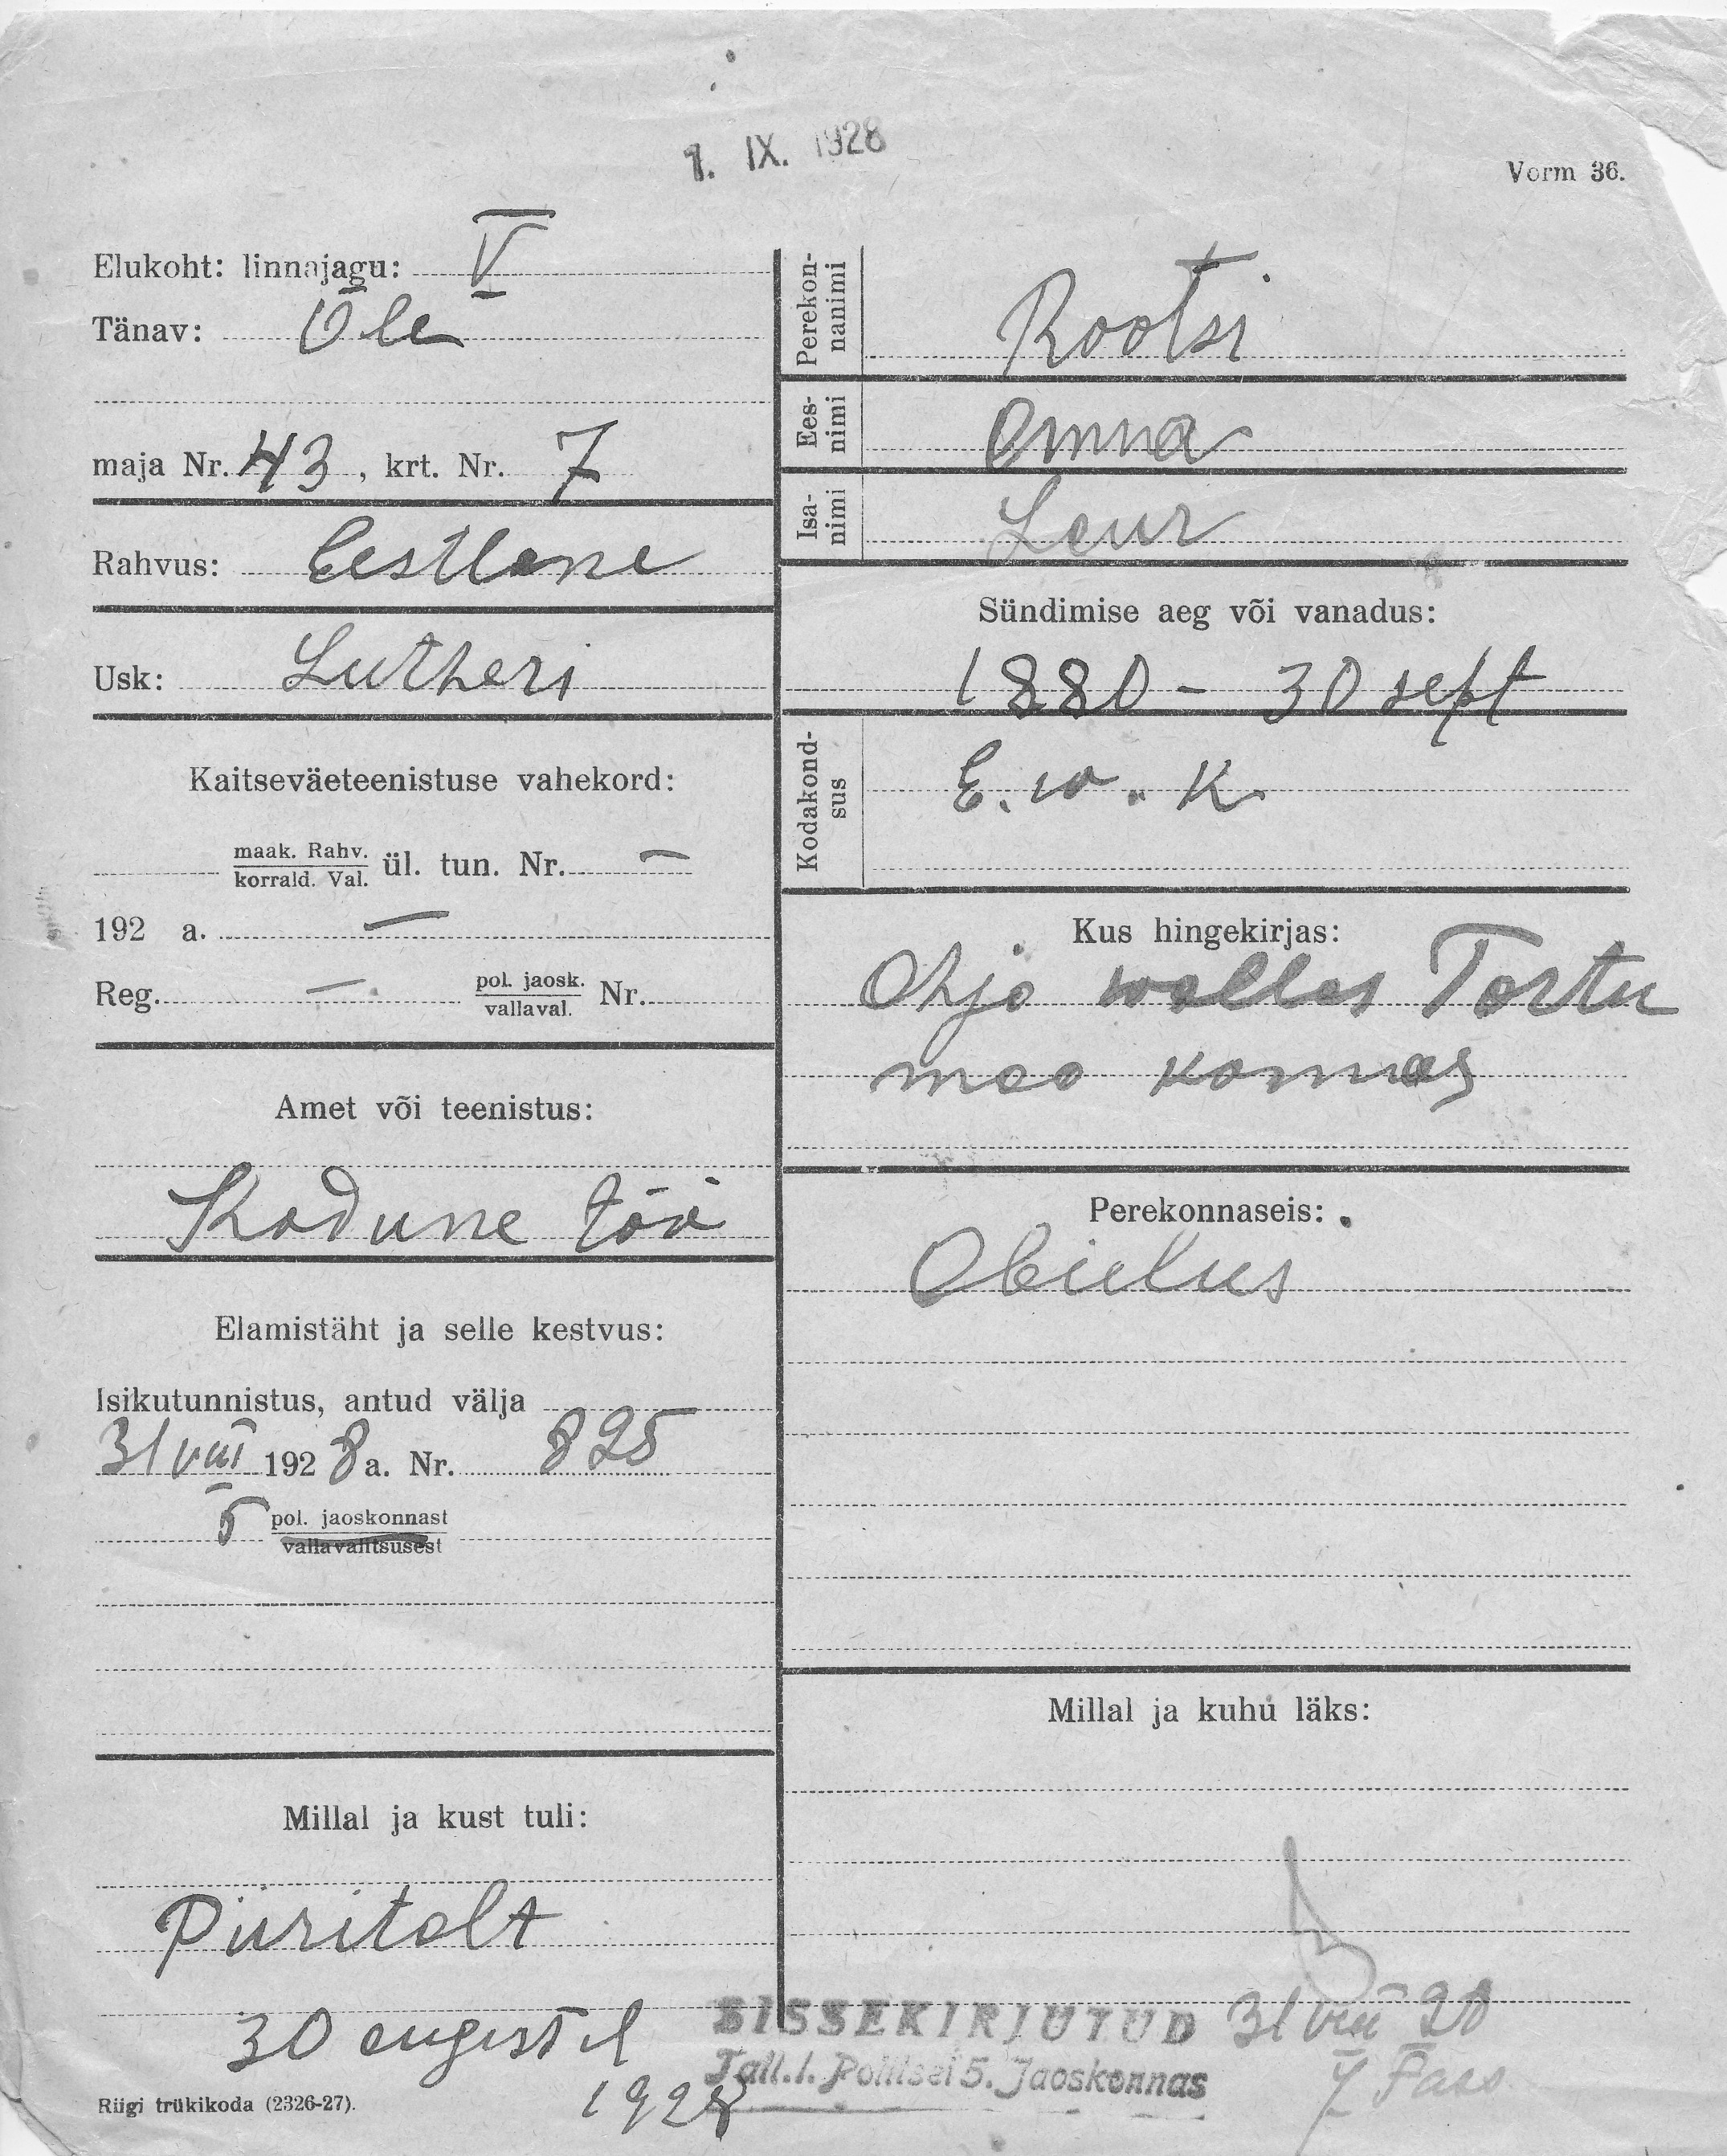 1. IX. 1928
Vorm 36.
Elukoht: linnajagu: V
Tänav: Õle
maja Nr. 43, krt. Nr. 7
Rahvus: Eestlane
Usk: Lutheri
Kaitseväeteenistuse vahekord:
maak. Rahv.
korrald. Val. ül. tun. Nr. —
192 a. —
Reg. — pol. jaosk.
vallaval. Nr.
Amet või teenistus:
Kodune töö
Elamistäht ja selle kestvus:
Isikutunnistus, antud välja
31 VIII 1928 a. Nr. 825
5 pol. jaoskonnast
vallavalitsusest
Millal ja kust tuli:
Piiritalt
30 augustil
1928
Riigi trükikoda (2326-27).
Perekon-
nanimi
Rootsi
Ees-
nimi
Anna
Isa-
nimi
Sündimise aeg või vanadus:
1880 - 30 sept
Kodakond-
sus
E. w. K
Kus hingekirjas:
Ahja wallas Tartu
maa konnas
Perekonnaseis:
Abielus
Millal ja kuhu läks:
SISSEKIRJUTUD 31 VIII 28
Tall. l. Politsei 5. Jaoskonnas